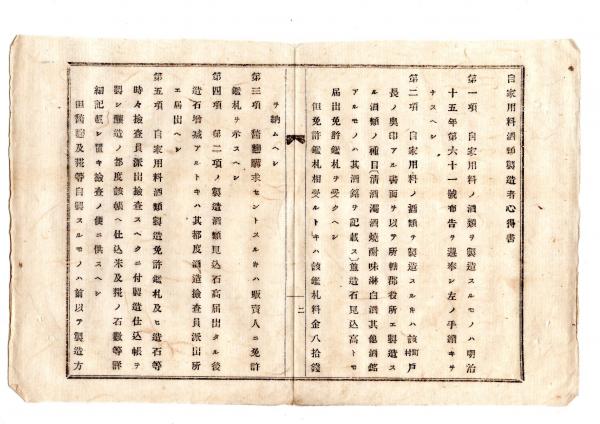 自家用料酒類製造者心得書
第一項 自家用料ノ酒類ヲ製造スルモノハ明治
十五年第六十一號布告ヲ遵奉シ左ノ手續キヲ
ナスヘシ
第二項 自家用料ノ酒類ヲ製造スルキハ該町村戸
長ノ奥印アル書面ヲ以テ所轄郡役所エ製造ス
ル酒類ノ種目清酒濁酒燒酎味淋白酒其他酒銘
アルモノハ其酒銘ヲ記載ス並造石見込高トモ
届出免許鑑札ヲ受クヘシ
但免許鑑札相受ルトキハ該鑑札料金八拾錢
二
ヲ納ムヘシ
第三項 舊麹購求セントスルキハ販賣人ニ免許
鑑札ヲ示スヘシ
第四項 第二項ノ製造酒類見込石高届出タル後
造石増減アルトキハ其都度釀造檢査員派出所
エ届出ヘシ
第五項 自家用料酒類製造免許鑑札及ヒ造石等
時々檢査員派出檢査スヘクニ付製造仕込帳ヲ
製シ釀造ノ都度該帳ヘ仕込米及糀ノ石數等詳
細記載シ置キ檢査ノ便ニ供スヘシ
但舊麹及糀等自製スルモノハ前以テ製造方